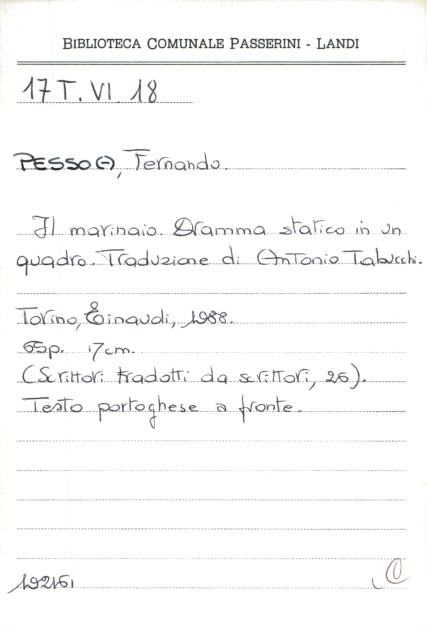 BIBLIOTECA COMUNALE PASSERINI - LANDI
17 T. VI. 18
PESSOA, Fernando.
Il marinaio. Dramma statico in un
quadro. Traduzione di Antonio Tabucchi.
Torino, Einaudi, 1988.
65p. 17cm.
(Scrittori tradotti da scrittori, 26).
Testo portoghese a fronte.